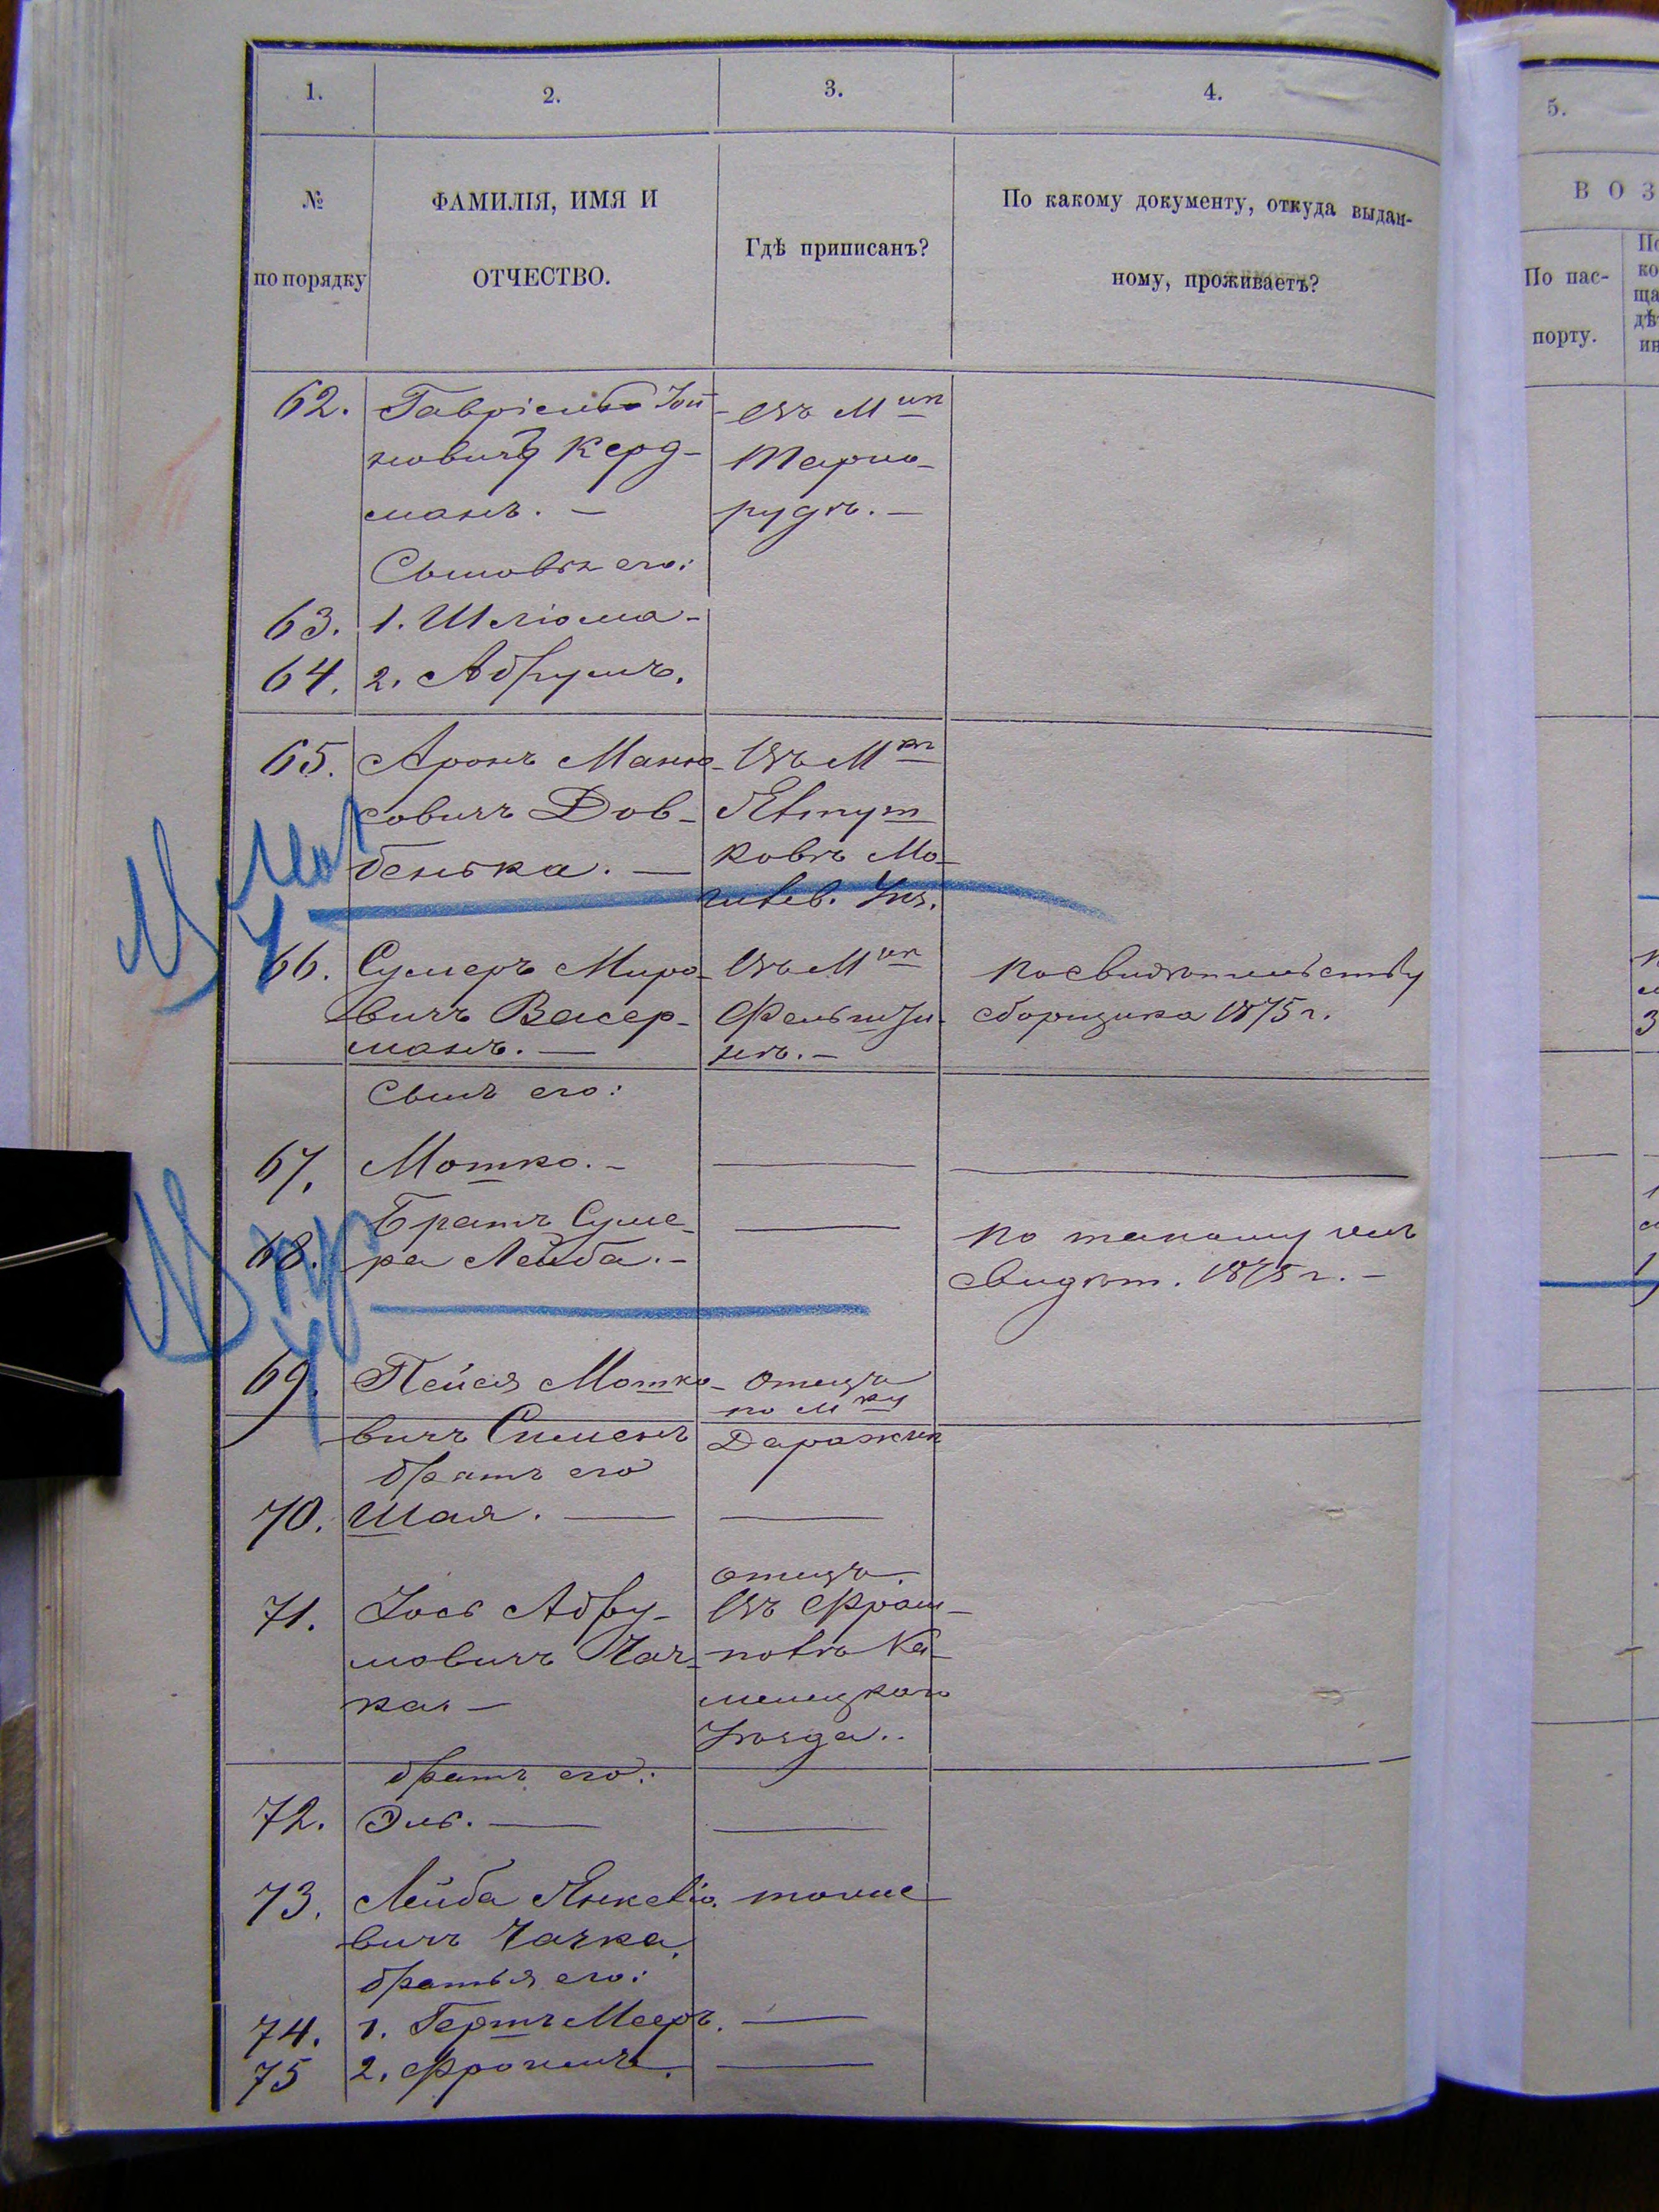 1. 2. 3. 4.
№
по порядку
ФАМИЛІЯ, ИМЯ И
ОТЧЕСТВО.
Гдѣ приписанъ?
По какому документу, откуда выдан-
ному, проживаетъ?
5.
ВОЗ
По пас-
порту.
62. Гавріель Іой-
новичъ Керд-
манъ. —
Въ Мкѣ
Тарно-
рудѣ. —
Сыновья его:
63. 1. Шліома -
64. 2. Абрумъ.
65. Аронъ Маню-
совичъ Дов-
бенька. —
Въ Мкѣ
Явтуш
ковѣ Мо-
гилев. Уѣз.
66. Сумеръ Миро-
вичъ Васер-
манъ. —
Въ Мкѣ
Фельшты-
нѣ. —
По свидѣтельству
сборщика 1875 г.
Сынъ его:
67. Мотко. -
68. Братъ Суме-
ра Лейба. -
По такому же
свидѣт. 1875 г. -
69. Пейся Мотко-
вичъ
отецъ
по Мку
Даражня
братъ его
70. Шая. —
71. Іось Абру-
мовичъ Чач-
ка. —
отецъ.
Въ Фрам-
повѣ Ка-
менецкаго
Уѣзда..
братъ его:
72. Эль. —
73. Лейба Янкеліо-
вичъ Чачка.
тоже
братья его:
74. 1. Гершъ Мееръ.
75 2. Фроимъ.